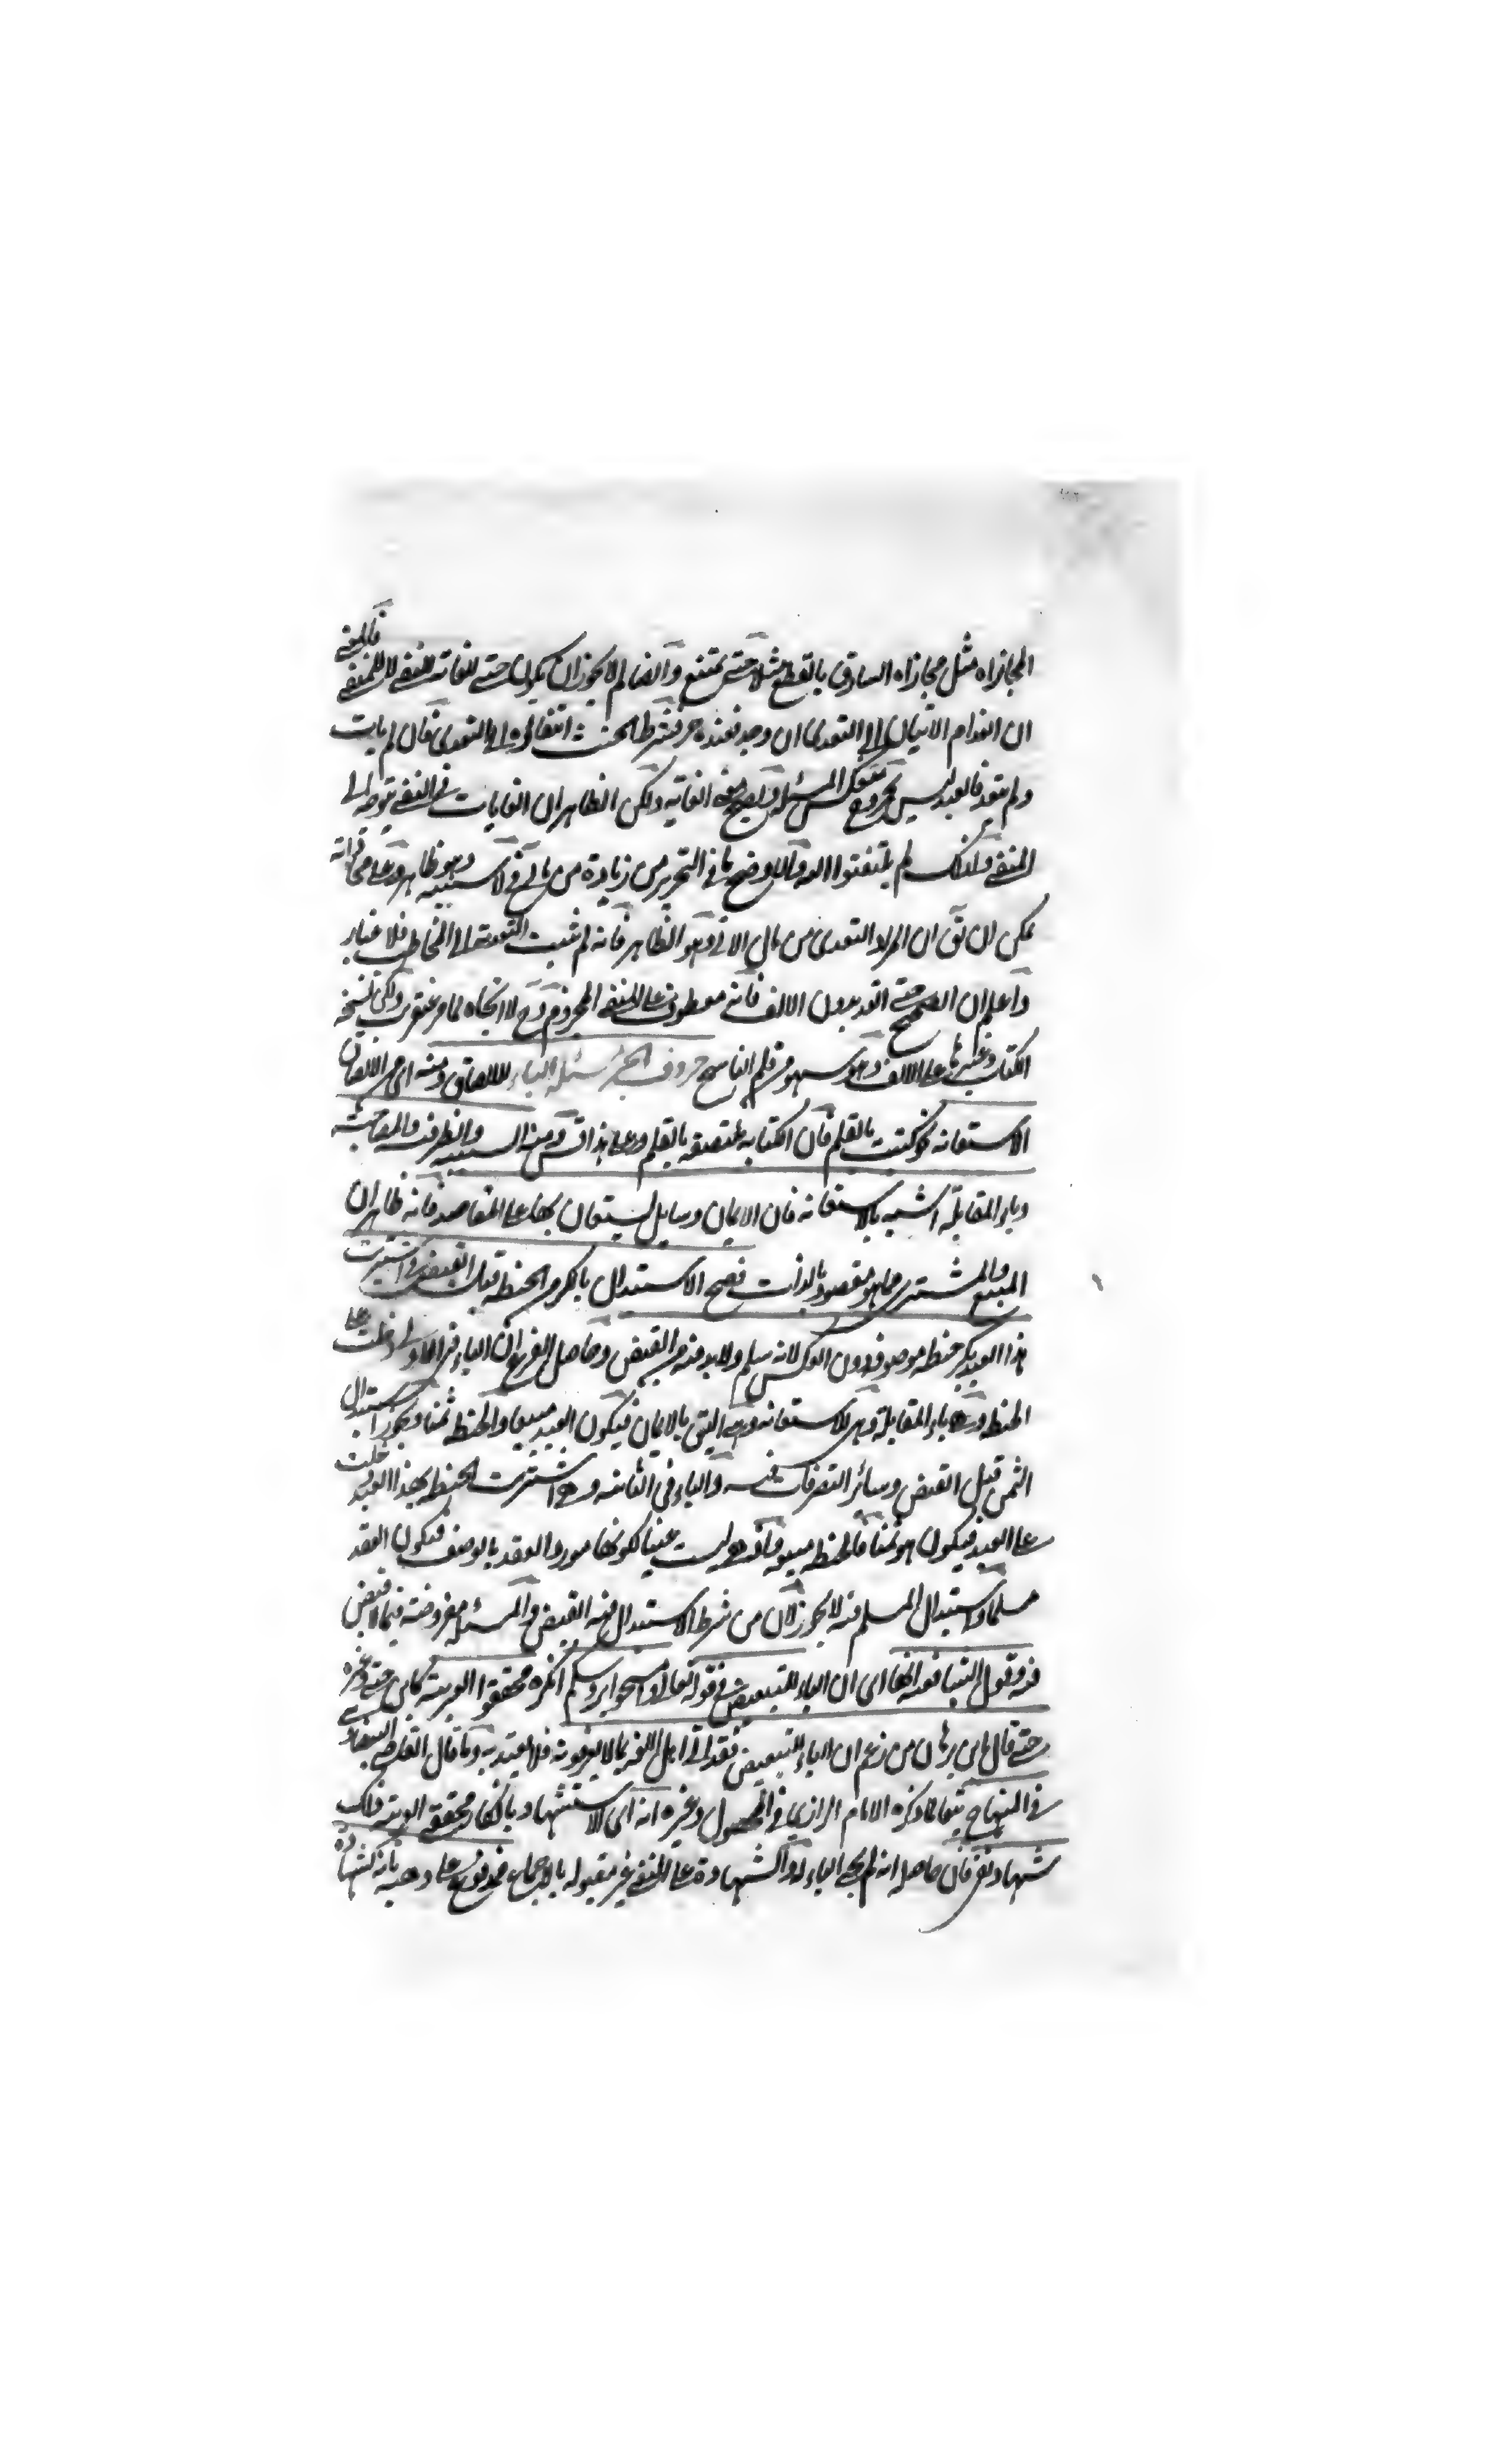 المجازاه مثل مجازاه السارق بالقطع مثلا حتى يمتنع وايضا لم لا يجوز ان يكون حتى لغاية النفي لا للمنفي فالمعنى
ان انعدام الاتيان الى التغدى ان وجد فعنده حر فشرط الحنث انتفاؤه الى التغدى فان لم يات
ولم يتغد فالعبد ليس بحر وح ينعكس المسئلة ويصح معنى الغاية ولكن الظاهر ان الغايات في النفي يتوجه الى
المنفي ولذلك لم يلتفتوا اليه والاوضح ما في التحرير من زيادة من مالي في لاتسبيه وهو ظاهر وعلى محاذاته
يمكن ان يق ان المراد التغدى من مال الاتي وهو الظاهر فانه لم ينسب التغدية الى المخاطب فلا غبار
واعلم ان الصحيح حتى اتغد بدون الالف فانه معطوف على المنفي المجزوم وح لا اتجاه لما مر عن قريب ولكن نسخة
الكتاب وغيرها على الالف وهو سهو من قلم الناسخ حروف الجر مسئلة الباء للالصاق ومنه اى من الالصاق
الاستعانة نحو كتبت بالقلم فان الكتابة ملتصقة بالقلم وعلى هذا قس ومنه السببية والظرفية والمصاحبة
وباء المقابلة اشبه بالاستعانة فان الاثمان وسايل يستعان بها على المقاصد فانه ظاهر ان
المبيع والمشترى مما هو مقصود بالذات فصح الاستبدال بالكر من الحنطة قبل القبض في اشتريت
هذا العبد بكر حنطة موصوفة دون العكس لانه سلم ولا بد فيه من القبض وحاصل الفرع ان الباء في الاولى دخلت على
الحنطة وهى باء المقابلة وهى للاستعانة وهى التى بالاثمان فيكون العبد مبيعا والحنطة ثمنا ويجوز استبدال
الثمن قبل القبض وسائر التصرفات فيه والباء في الثانية وهى اشتريت الحنطة بهذا العبد دخلت
على العبد فيكون هو ثمنا فالحنطة مبيعة وانها ليست عينا لكونها مورد العقد بالوصف فيكون العقد
سلما واستبدال المسلم فيه لا يجوز لان من شرط الاستبدال فيه القبض والمسئلة مفروضة فيما لا قبض
فيه وقول الشافعية انها اى ان الباء للتبعيض في قوله تعالى وامسحوا برؤسكم انكره محققوا العربية كابن جنى وغيره
حتى قال ابن برهان من زعم ان الباء للتبعيض فقد اتى اهل اللغة بما لا يعرفونه فلا يعتد به وما قال القاضى البيضاوى
في المنهاج تبعا لما ذكره الامام الرازي في المحصول وغيره انه اى الاستشهاد بانكار محققى العربية ذلك
شهادة نفي فان حاصله انه لم يجئ الباء له والشهادة على النفي غير مقبولة بالاجماع فمدفوع على وهيه بانه كشهادة